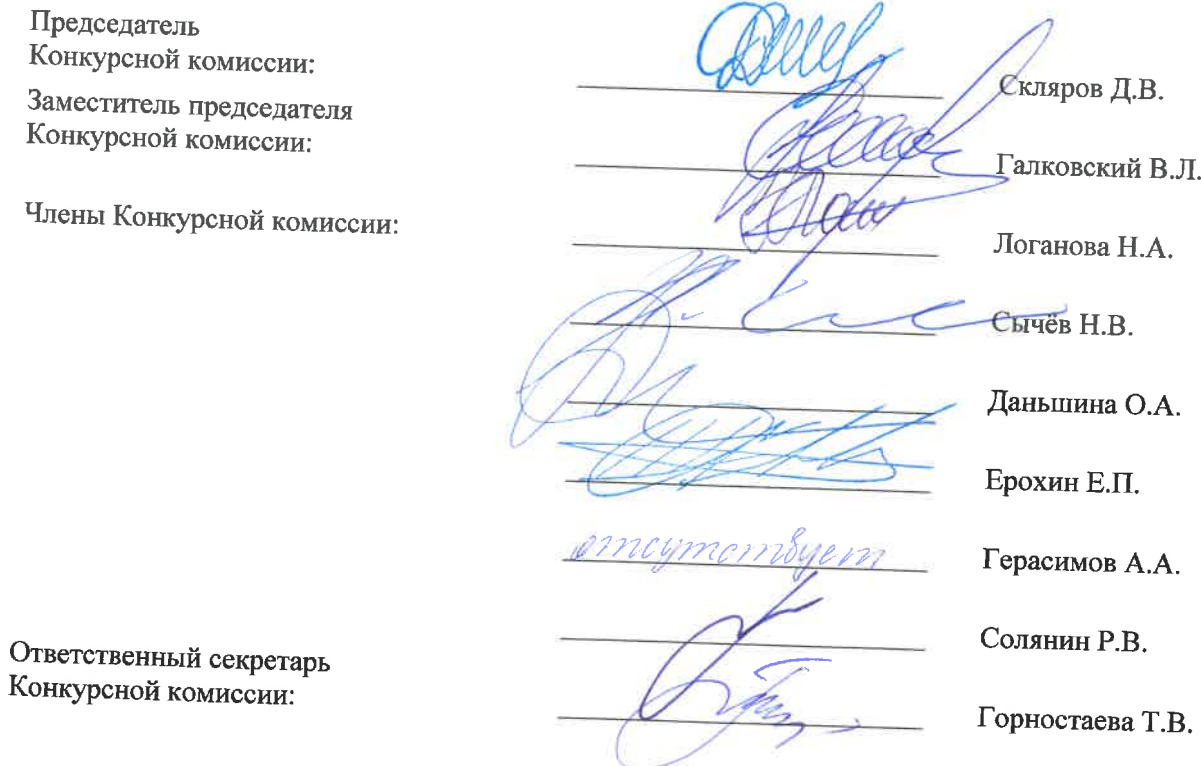 Председатель
Конкурсной комиссии:
Скляров Д.В.
Заместитель председателя
Конкурсной комиссии:
Галковский В.Л.
Члены Конкурсной комиссии:
Логанова Н.А.
Сычёв Н.В.
Даньшина О.А.
Ерохин Е.П.
отсутствует
Герасимов А.А.
Солянин Р.В.
Ответственный секретарь
Конкурсной комиссии:
Горностаева Т.В.